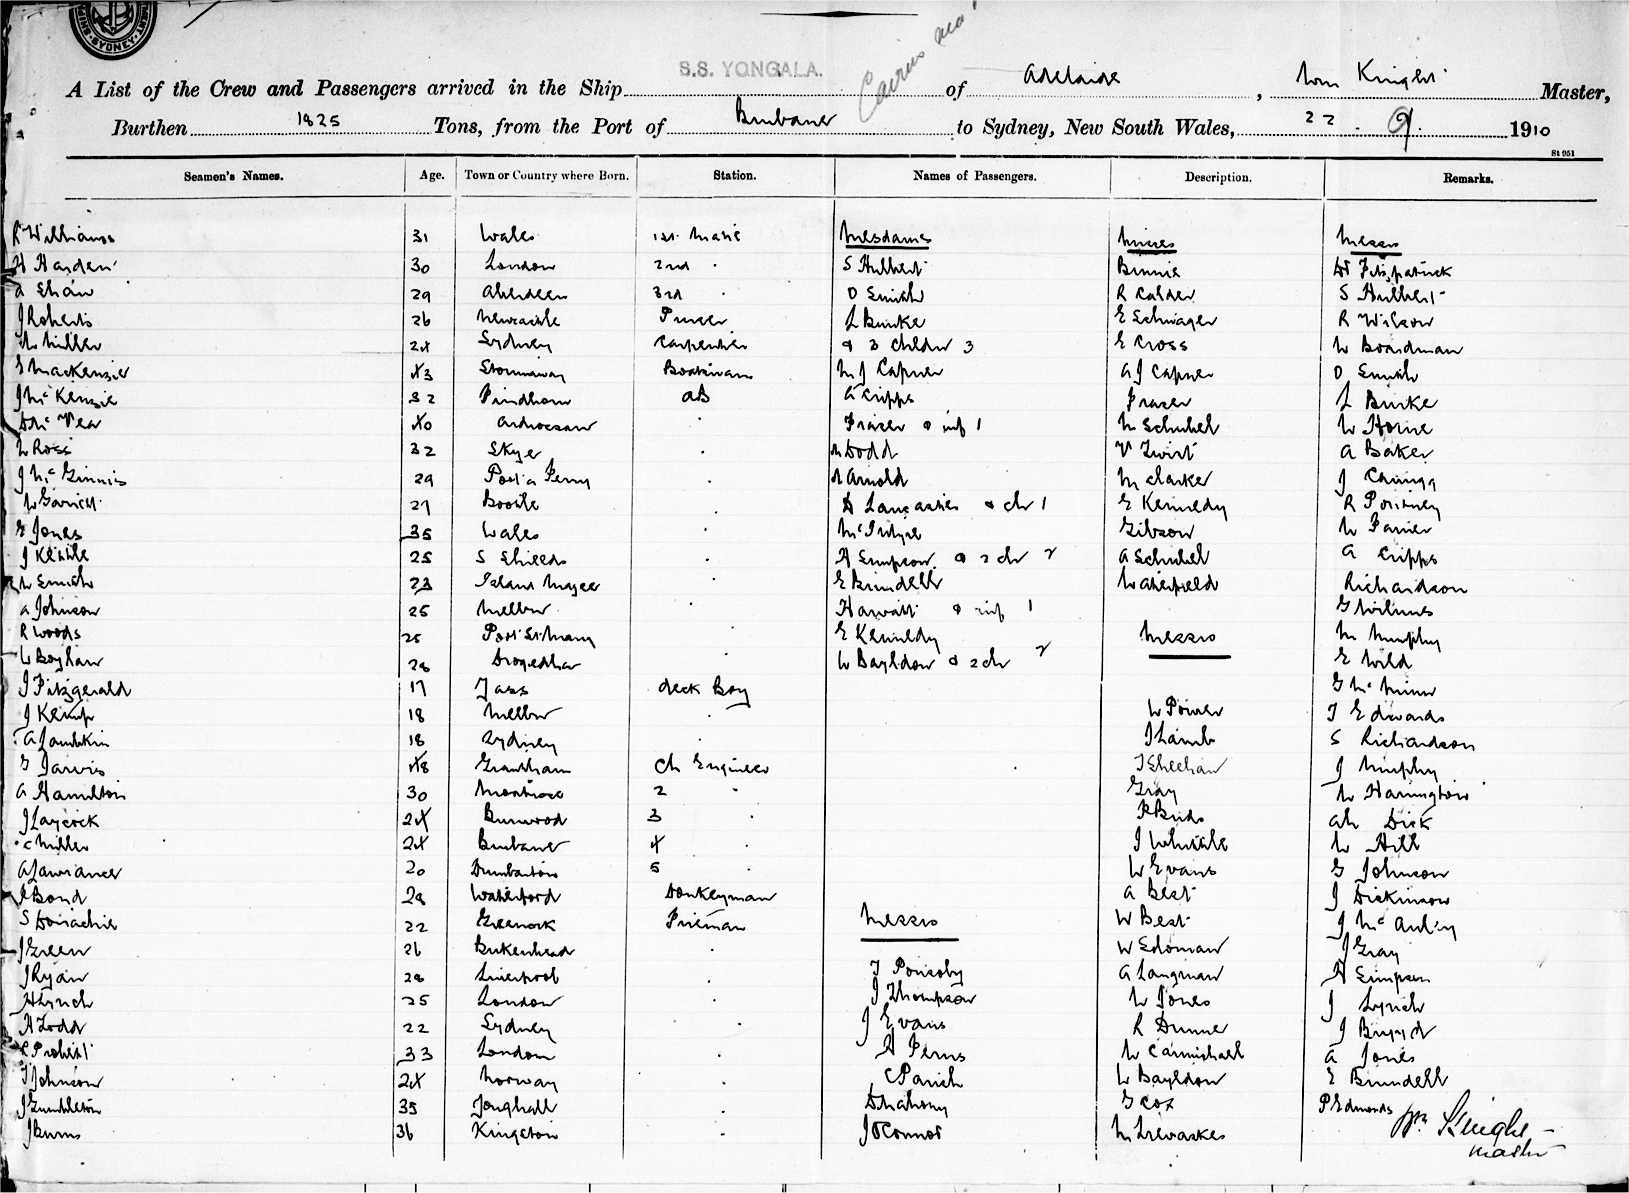 SYDNEY
S.S. YONGALA.
Cairns
A List of the Crew and Passengers arrived in the Ship of Adelaide, Wm Knight Master,
Burthen 1825 Tons, from the Port of Brisbane to Sydney, New South Wales, 22 . 9 . 1910
St 951
Seamen's Names. Age. Town or Country where Born. Station. Names of Passengers. Description. Remarks.
R Williams 31 Wales 1st Mate Mesdames Misses Messrs
H Harden 30 London 2nd S Hulbert Binnie Dr Fitzpatrick
A Shaw 29 Aberdeen 3rd D Smith R Calder S Hulbert
J Roberts 26 Newcastle Purser L Burke E Schwager R Wilson
W Miller 24 Sydney Carpenter & 3 Childrn 3 E Cross W Boardman
S MacKenzie 43 Stornoway Boatswain M J Capner A J Capner D Smith
J McKenzie 32 AB A Cripps Frazer L Burke
D McVea 40 Ardrossan Frazer & inf 1 M Schubel W Horne
W Ross 32 Skye Dodd V Twist A Baker
J McGinnis 29 Port a Perry Arnold M Clarker J
W 27 Bootle D Lancaster & ch 1 E Kennedy R
E Jones 35 Wales McIntyre Gibson W
J 25 S Shields A Simpson & 2 ch 2 A Schubel A Cripps
W Smith 23 Island Magee E Brindell Waterfield Richardson
A Johnson 25 Melbn & inf 1 G Holmes
R Woods 25 Port St Mary E Kennedy Messrs M Murphy
W Boylan 28 Drogedha W Bayldon & 2 ch 2 E Wild
J Fitzgerald 17 Yass Deck Boy G McMinn
J Kemp 18 Melbn W Power T Edwards
A Lambkin 18 Sydney J Lamb S Richardson
G Jarvis 48 Grantham Ch Engineer J Sheehan J Murphy
A Hamilton 30 Montrose 2 Gray W Harrington
J Laycock 24 Burwood 3 R Birks Ah Dick
C Miller 24 Brisbane 4 J Whittle W Hill
A Lawrance 20 Dumbarton 5 W Evans G Johnson
J Bond 28 Waterford Donkeyman A Best J Dickinson
S Donachie 22 Greenock Fireman Messrs W Best J McAuley
J Green 26 Birkenhead W Edoman J Gray
J Ryan 28 Liverpool T Ponsoby A Langman A Simpson
H Lynch 25 London J Thompson W Jones J Lynch
H Todd 22 Sydney J Evans R Dunne J
R Probert 33 London A Perris W Carmichael A Jones
T Johnson 24 Norway C Parish W Bayldon E Brindell
J Gumbleton 35 Youghall D Mahony G Cox P Edmonds
J Burns 36 Kingston J O'Connor M Trewaskes Wm Knight
Master